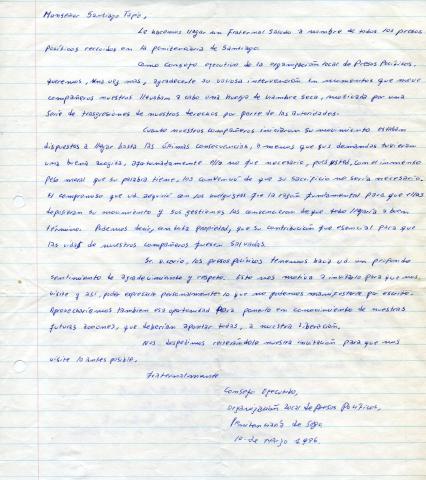 Monseñor Santiago Tapia,
Le hacemos llegar un fraternal saludo a nombre de todos los presos
políticos recluidos en la penitenciaría de Santiago.
Como Consejo ejecutivo de la organización local de Presos Políticos,
queremos, una vez más, agradecerle su valiosa intervención en momentos que nueve
compañeros nuestros llevaban a cabo una huelga de hambre seca, motivada por una
serie de trasgresiones de nuestros derechos por parte de las autoridades.
Cuando nuestros compañeros iniciaron su movimiento estaban
dispuestos a llegar hasta las últimas consecuencias, a menos que sus demandas tuvieran
una buena acogida, afortunadamente ello no fue necesario, pues usted, con el inmenso
peso moral que su palabra tiene, los convenció de que su sacrificio no sería necesario.
El compromiso que ud. asumió con los huelguistas fue la razón fundamental para que ellos
depusieran su movimiento y sus gestiones los convencieron de que todo llegaría a buen
término. Podemos decir, con toda propiedad, que su contribución fue esencial para que
las vidas de nuestros compañeros fuesen salvadas.
Sr. Vicario, los presos políticos tenemos hacia ud. un profundo
sentimiento de agradecimiento y respeto. Esto nos motiva a invitarlo para que nos
visite y así, poder expresarle personalmente lo que no podemos manifestarle por escrito.
Aprovecharíamos también esa oportunidad para ponerlo en conocimiento de nuestras
futuras acciones, que deberían apuntar todas, a nuestra liberación.
Nos despedimos reiterándole nuestra invitación para que nos
visite lo antes posible.
Fraternalmente
Consejo Ejecutivo,
Organización local de Presos Políticos,
Penitenciaría de Stgo
10 de Marzo 1986.